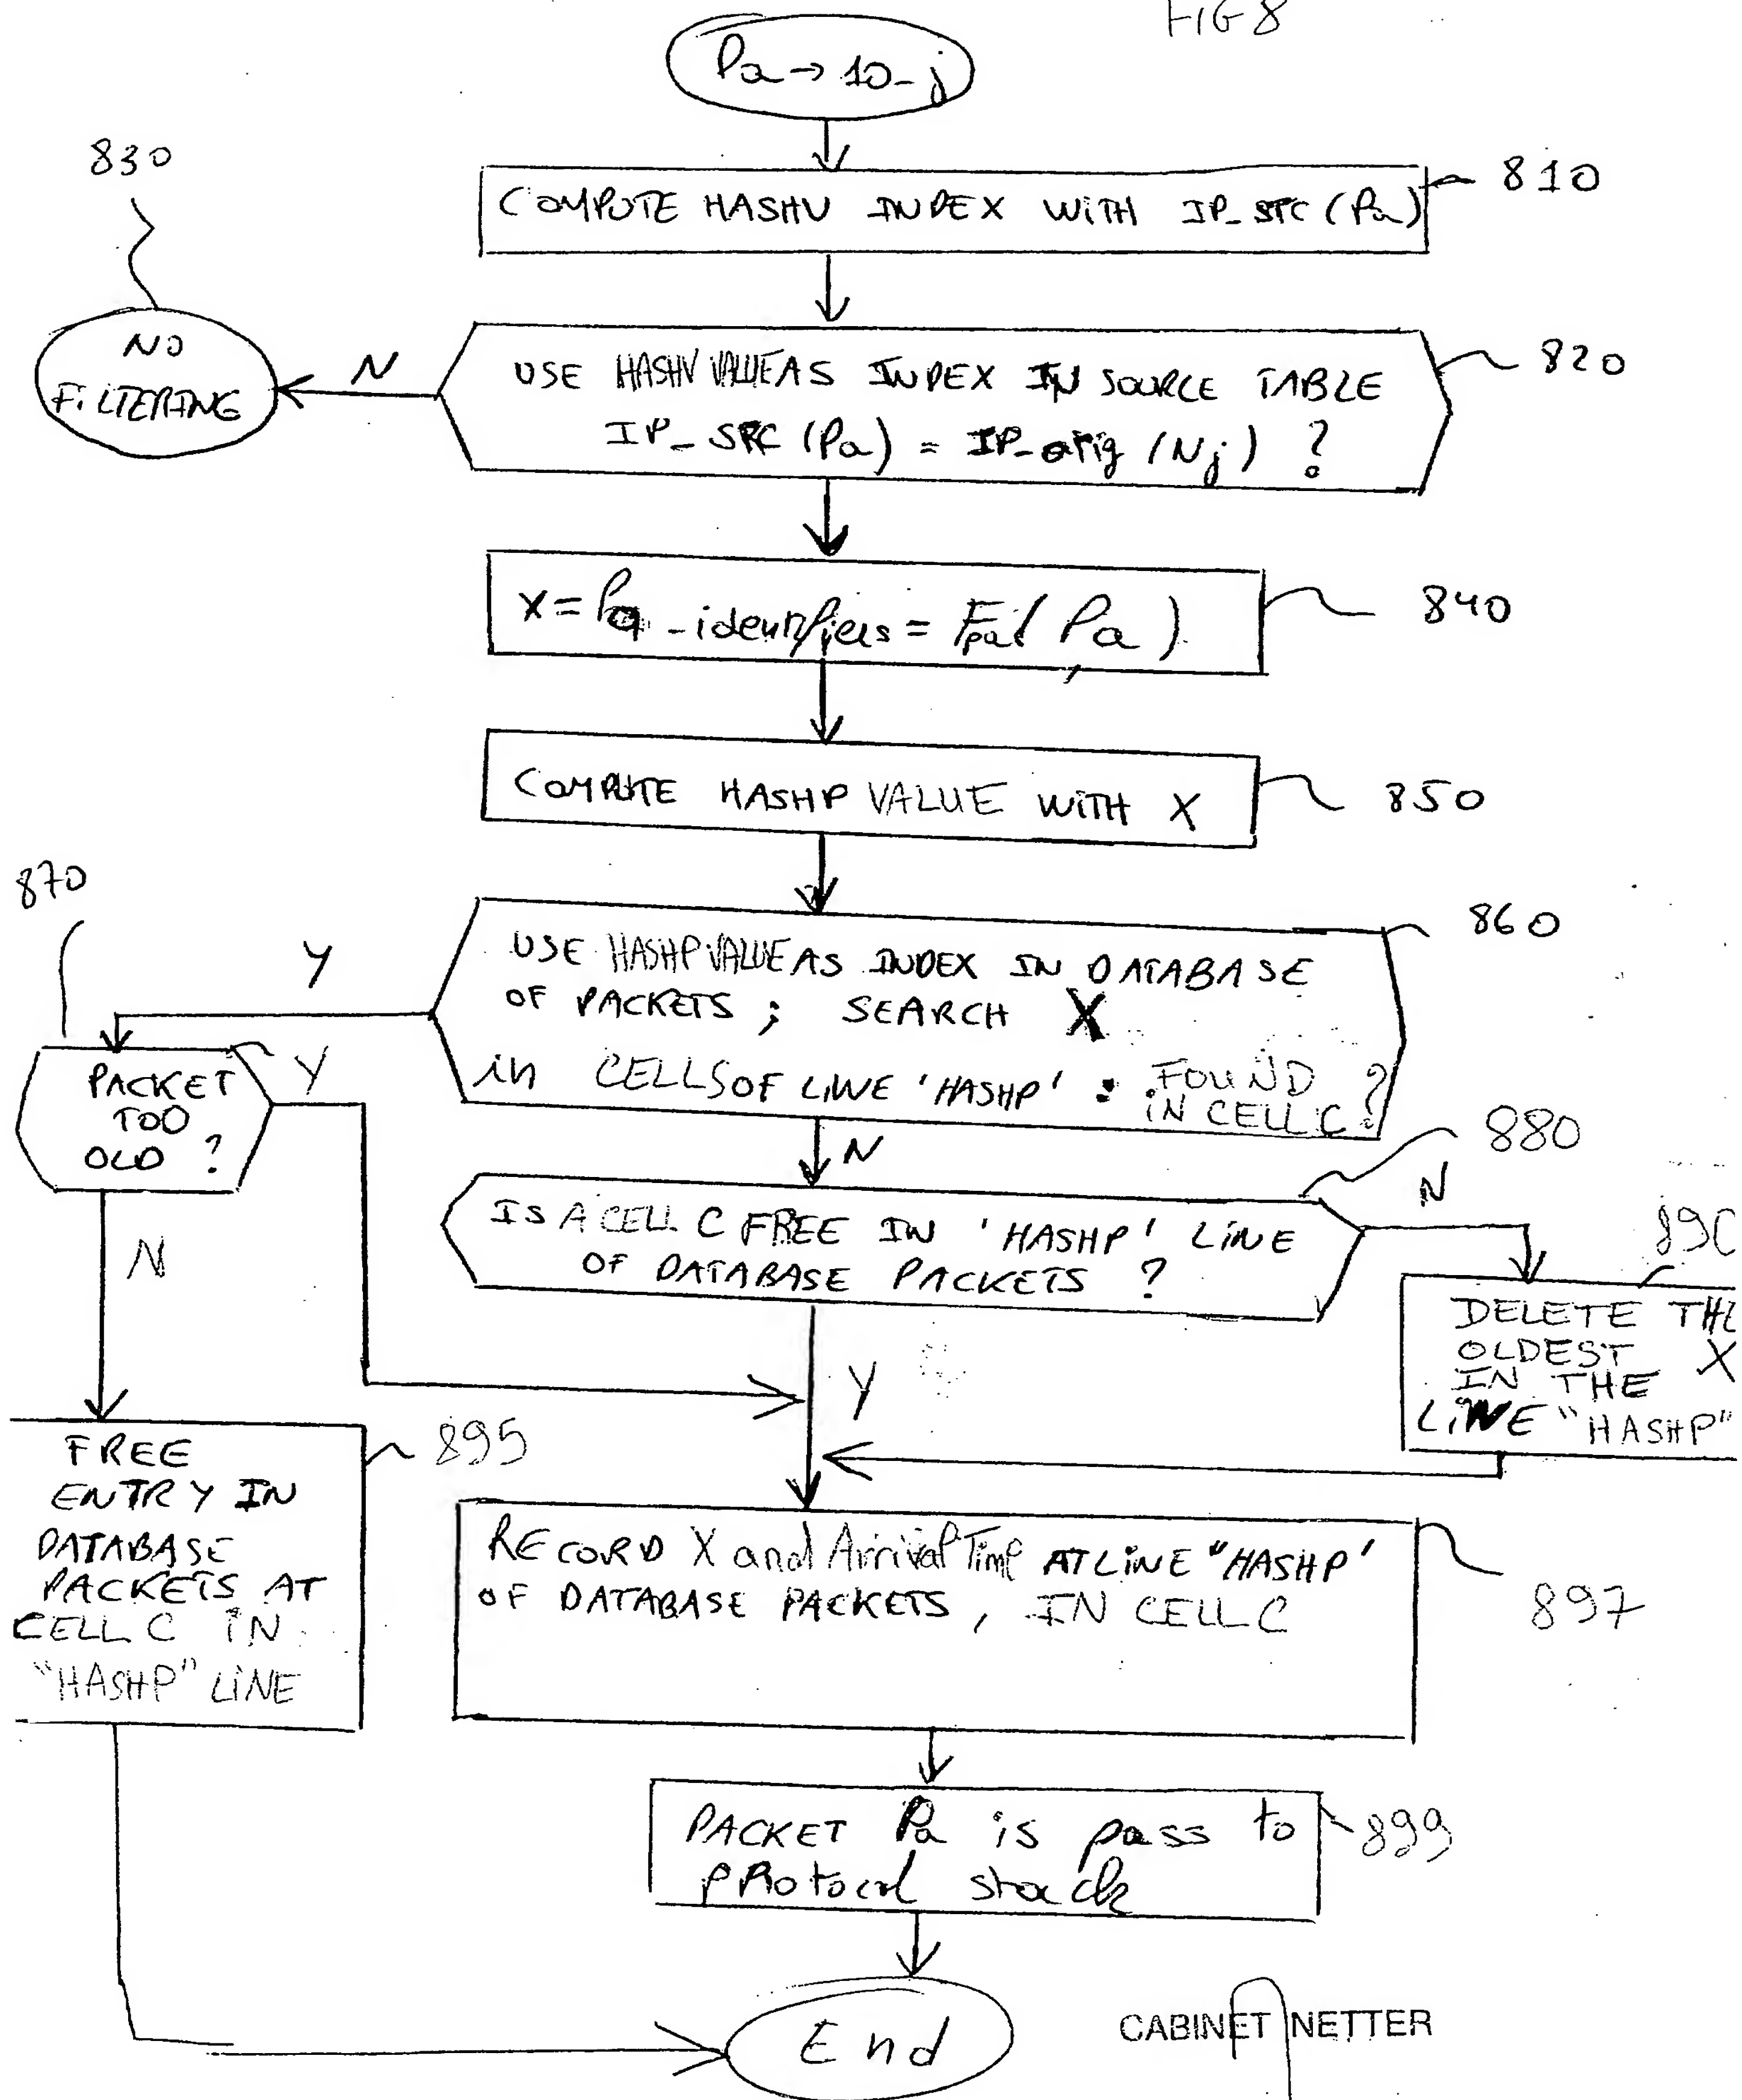 FIG 8
Pa → 10-j
830
810
COMPUTE HASHV INDEX WITH IP_SRC (Pa)
NO
FILTERING
N
820
USE HASHV VALUE AS INDEX IN SOURCE TABLE
IP_SRC (Pa) = IP_orig (Nj) ?
840
X = Pa_identifiers = Fpa( Pa )
850
COMPUTE HASHP VALUE WITH X
870
860
Y
USE HASHP VALUE AS INDEX IN DATABASE
OF PACKETS ; SEARCH X
in CELLS OF LINE 'HASHP' : FOUND
IN CELL C ?
PACKET
TOO
OLD ?
Y
N
880
N
IS A CELL C FREE IN 'HASHP' LINE
OF DATABASE PACKETS ?
N
890
DELETE THE
OLDEST X
IN THE
LINE "HASHP"
Y
FREE
ENTRY IN
DATABASE
PACKETS AT
CELL C IN
"HASHP" LINE
895
RECORD X and Arrival Time AT LINE "HASHP'
OF DATABASE PACKETS, IN CELL C
897
PACKET Pa is pass to
pRotocol stack
899
End
CABINET NETTER